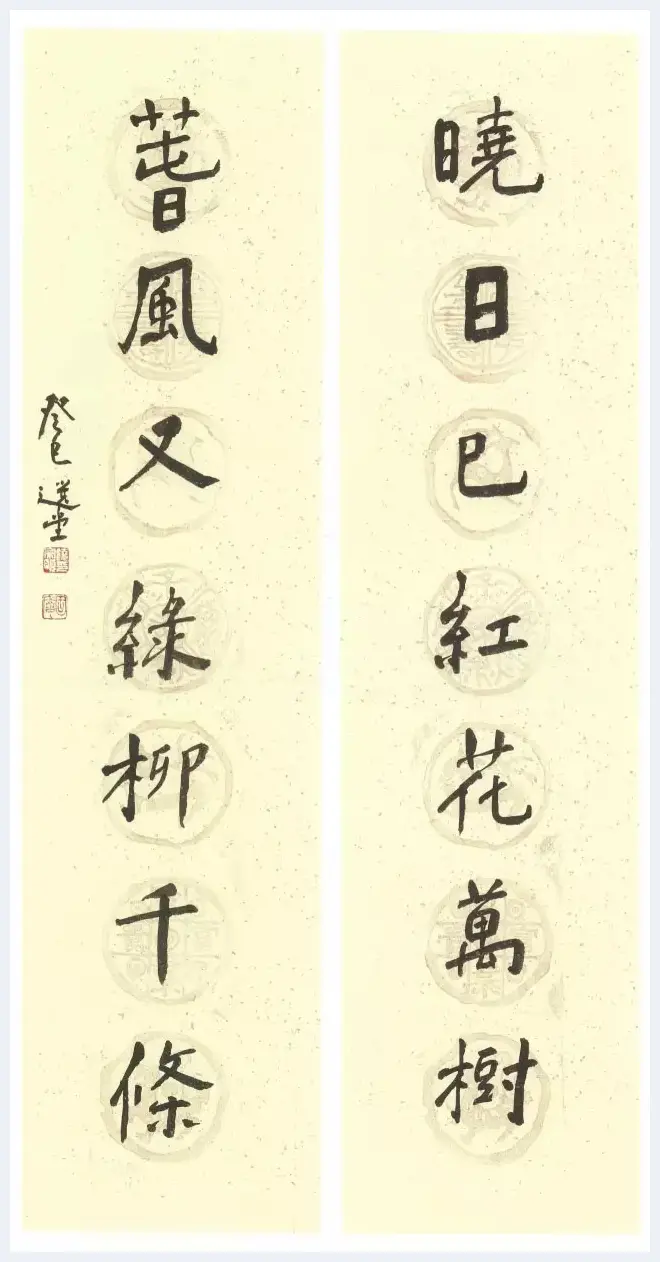 曉日已紅花萬樹
萅風又綠柳千條
癸巳選堂